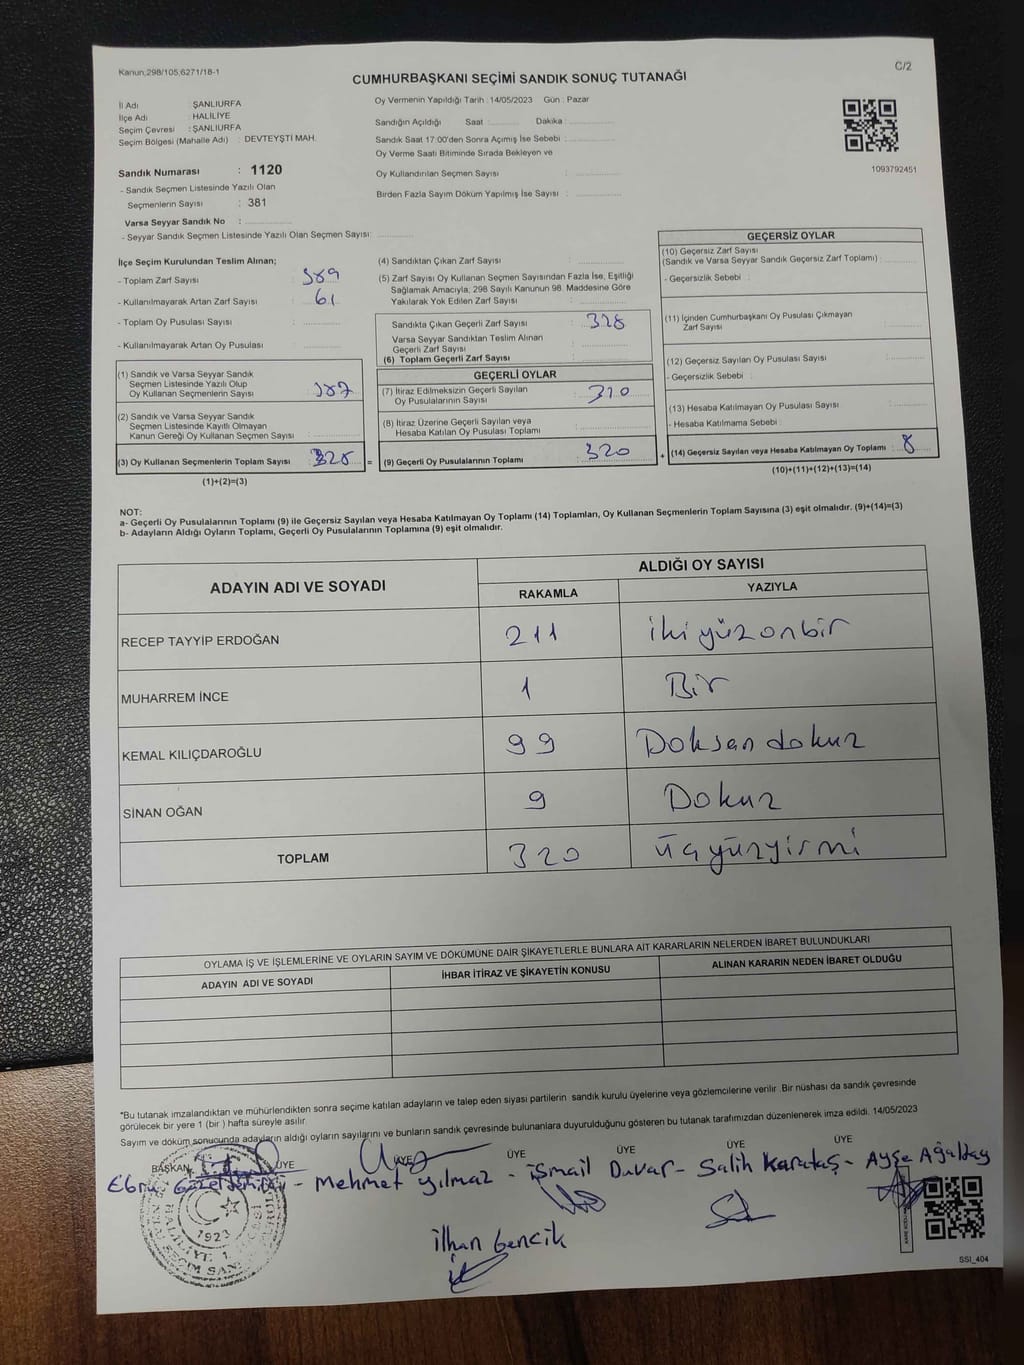 Kanun;298/105;6271/18-1
C/2
CUMHURBAŞKANI SEÇİMİ SANDIK SONUÇ TUTANAĞI
İl Adı : ŞANLIURFA
İlçe Adı : HALİLİYE
Seçim Çevresi : ŞANLIURFA
Seçim Bölgesi (Mahalle Adı) : DEVTEYŞTİ MAH.
Sandık Numarası : 1120
- Sandık Seçmen Listesinde Yazılı Olan
Seçmenlerin Sayısı : 381
Varsa Seyyar Sandık No :
- Seyyar Sandık Seçmen Listesinde Yazılı Olan Seçmen Sayısı:
Oy Vermenin Yapıldığı Tarih : 14/05/2023 Gün : Pazar
Sandığın Açıldığı Saat : Dakika :
Sandık Saat 17.00'den Sonra Açımış İse Sebebi :
Oy Verme Saati Bitiminde Sırada Bekleyen ve
Oy Kullandırılan Seçmen Sayısı :
Birden Fazla Sayım Döküm Yapılmış İse Sayısı :
1093792451
İlçe Seçim Kurulundan Teslim Alınan;
- Toplam Zarf Sayısı : 389
- Kullanılmayarak Artan Zarf Sayısı : 61
- Toplam Oy Pusulası Sayısı :
- Kullanılmayarak Artan Oy Pusulası :
(1) Sandık ve Varsa Seyyar Sandık
Seçmen Listesinde Yazılı Olup
Oy Kullanan Seçmenlerin Sayısı :
(2) Sandık ve Varsa Seyyar Sandık
Seçmen Listesinde Kayıtlı Olmayan
Kanun Gereği Oy Kullanan Seçmen Sayısı :
(3) Oy Kullanan Seçmenlerin Toplam Sayısı : 328 =
(1)+(2)=(3)
(4) Sandıktan Çıkan Zarf Sayısı :
(5) Zarf Sayısı Oy Kullanan Seçmen Sayısından Fazla İse, Eşitliği
Sağlamak Amacıyla; 298 Sayılı Kanunun 98. Maddesine Göre
Yakılarak Yok Edilen Zarf Sayısı :
Sandıkta Çıkan Geçerli Zarf Sayısı : 328
Varsa Seyyar Sandıktan Teslim Alınan
Geçerli Zarf Sayısı :
(6) Toplam Geçerli Zarf Sayısı :
GEÇERLİ OYLAR
(7) İtiraz Edilmeksizin Geçerli Sayılan
Oy Pusulalarının Sayısı : 320
(8) İtiraz Üzerine Geçerli Sayılan veya
Hesaba Katılan Oy Pusulası Toplamı :
(9) Geçerli Oy Pusulalarının Toplamı : 320 +
GEÇERSİZ OYLAR
(10) Geçersiz Zarf Sayısı
(Sandık ve Varsa Seyyar Sandık Geçersiz Zarf Toplamı) :
- Geçersizlik Sebebi :
(11) İçinden Cumhurbaşkanı Oy Pusulası Çıkmayan
Zarf Sayısı :
(12) Geçersiz Sayılan Oy Pusulası Sayısı :
- Geçersizlik Sebebi :
(13) Hesaba Katılmayan Oy Pusulası Sayısı :
- Hesaba Katılmama Sebebi :
(14) Geçersiz Sayılan veya Hesaba Katılmayan Oy Toplamı : 8
(10)+(11)+(12)+(13)=(14)
NOT:
a- Geçerli Oy Pusulalarının Toplamı (9) ile Geçersiz Sayılan veya Hesaba Katılmayan Oy Toplamı (14) Toplamları, Oy Kullanan Seçmenlerin Toplam Sayısına (3) eşit olmalıdır. (9)+(14)=(3)
b- Adayların Aldığı Oyların Toplamı, Geçerli Oy Pusulalarının Toplamına (9) eşit olmalıdır.
ADAYIN ADI VE SOYADI ALDIĞI OY SAYISI
RAKAMLA YAZIYLA
RECEP TAYYİP ERDOĞAN 211 ikiyüzonbir
MUHARREM İNCE 1 Bir
KEMAL KILIÇDAROĞLU 99 Doksan dokuz
SİNAN OĞAN 9 Dokuz
TOPLAM 320 üçyüzyirmi
OYLAMA İŞ VE İŞLEMLERİNE VE OYLARIN SAYIM VE DÖKÜMÜNE DAİR ŞİKAYETLERLE BUNLARA AİT KARARLARIN NELERDEN İBARET BULUNDUKLARI
ADAYIN ADI VE SOYADI İHBAR İTİRAZ VE ŞİKAYETİN KONUSU ALINAN KARARIN NEDEN İBARET OLDUĞU
*Bu tutanak imzalandıktan ve mühürlendikten sonra seçime katılan adayların ve talep eden siyasi partilerin sandık kurulu üyelerine veya gözlemcilerine verilir. Bir nüshası da sandık çevresinde
görülecek bir yere 1 (bir) hafta süreyle asılır.
Sayım ve döküm sonucunda adayların aldığı oyların sayılarını ve bunların sandık çevresinde bulunanlara duyurulduğunu gösteren bu tutanak tarafımızdan düzenlenerek imza edildi. 14/05/2023
BAŞKAN ÜYE ÜYE ÜYE ÜYE ÜYE ÜYE
Ebru - Mehmet yılmaz - ismail Duvar - Salih Karataş - Ayşe Ağalday
ilhan Gencik
1923
SSI_404